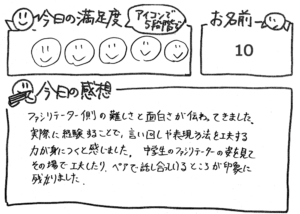 今日の満足度
アイコンで
5段階で
お名前
10
今日の感想
ファシリテーター側の難しさと面白さが伝わってきました。
実際に経験することで、言い回しや表現方法を工夫する
力が身につくと感じました。中学生のファシリテーターの姿を見て
その場で工夫したり、ペアで話し合えているところが印象に
残りました。